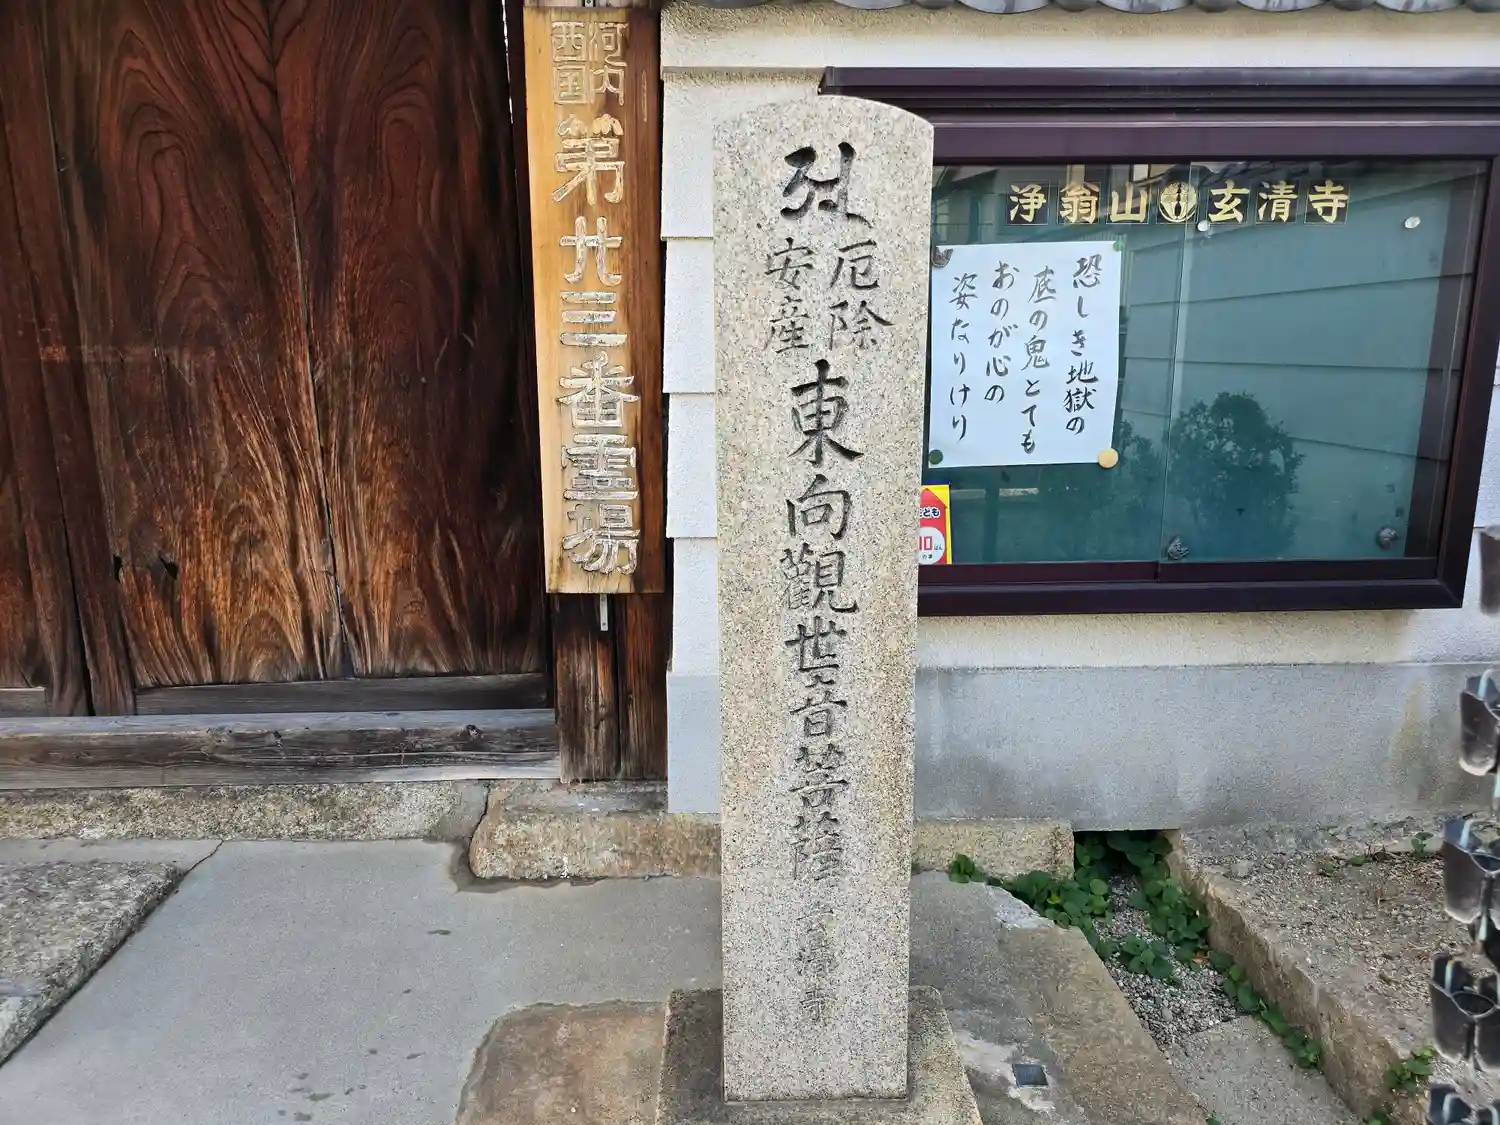 河内
西国
第廿三番霊場
厄除
安産
東向觀世音菩薩
玄清寺
浄翁山
玄清寺
恐しき地獄の
底の鬼とても
おのが心の
姿なりけり
とも
110
ばん